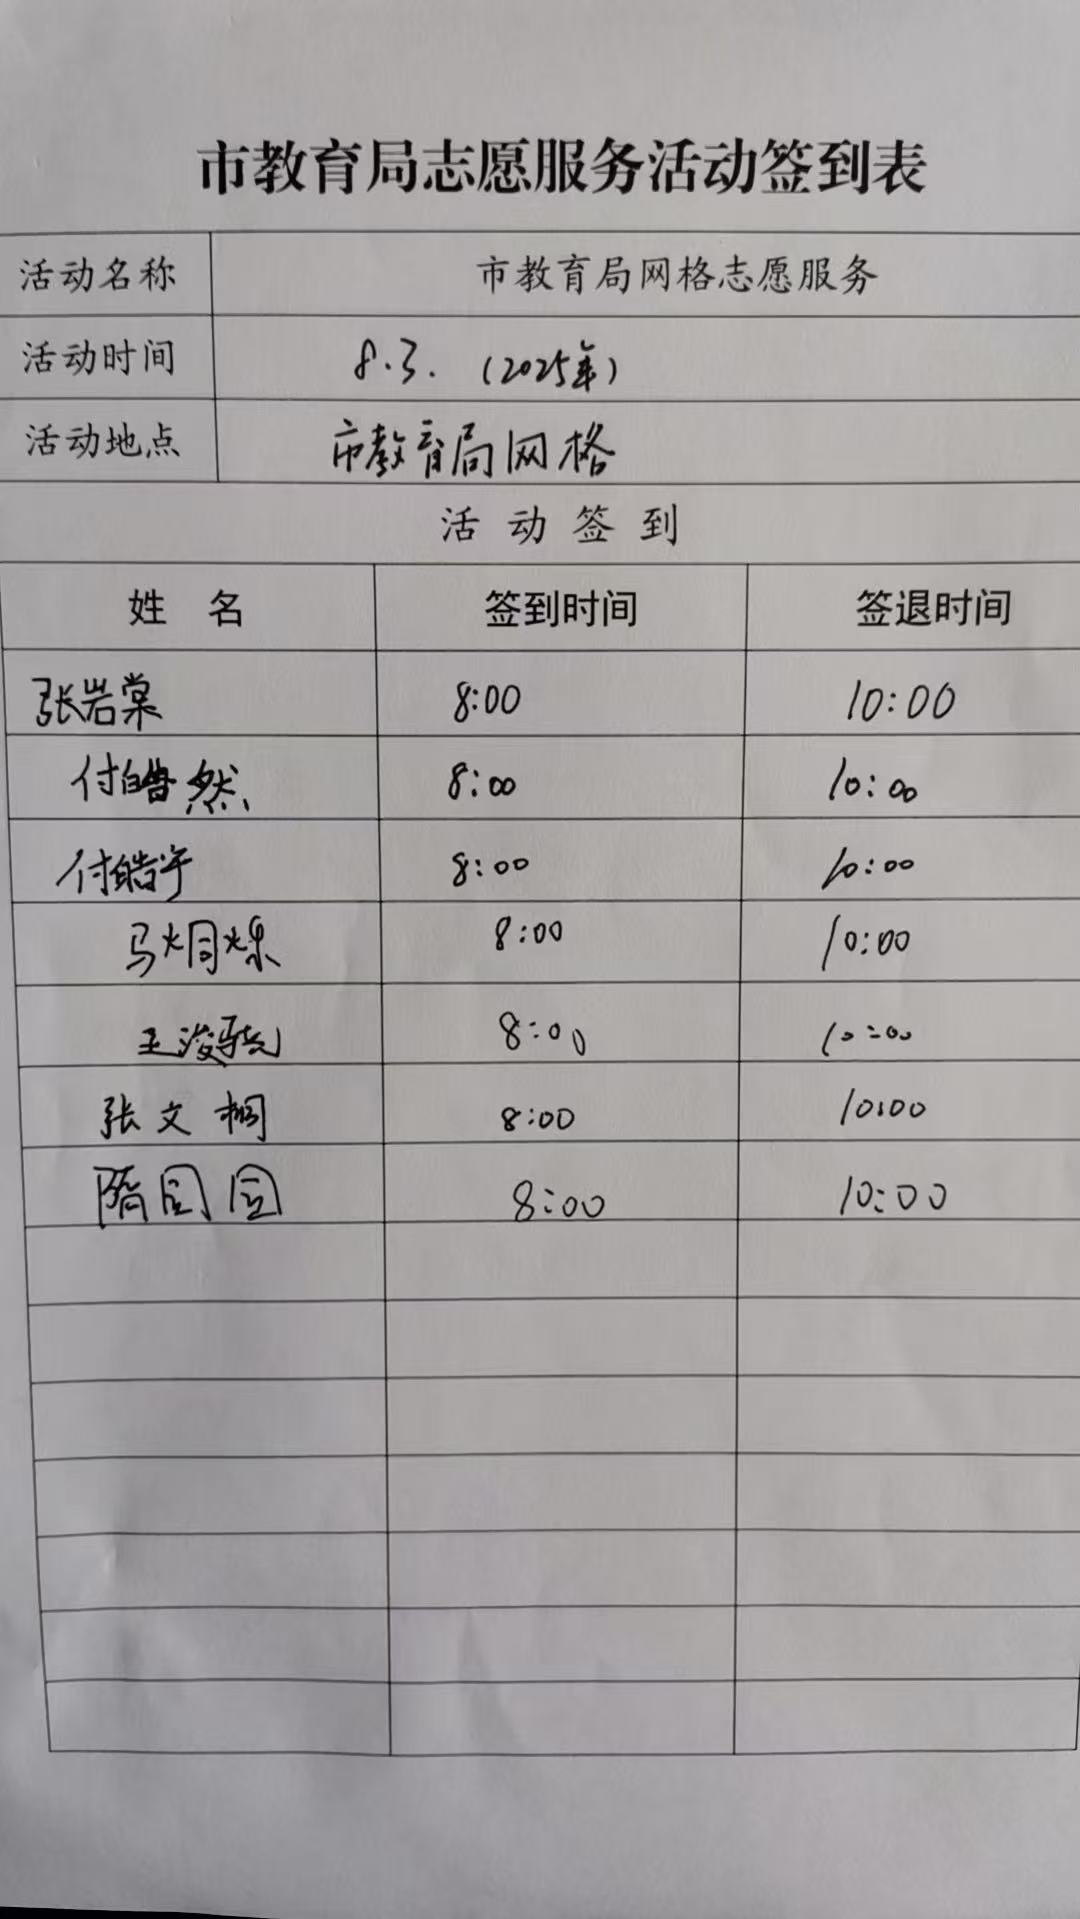 市教育局志愿服务活动签到表
活动名称 市教育局网格志愿服务
活动时间 8.3. (2025年)
活动地点 市教育局网格
活动签到
姓名 签到时间 签退时间
张岩棠 8:00 10:00
付皓然 8:00 10:00
付皓宇 8:00 10:00
马炯烁 8:00 10:00
王浚骁 8:00 10:00
张文桐 8:00 10:00
隋 8:00 10:00